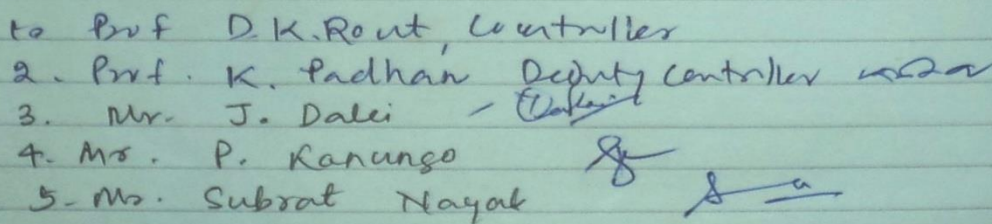 to Prof D.K.Rout, Controller
2. Prof. K. Padhan Deputy Controller
3. Mr. J. Dalei -
4. Mr. P. Kanungo
5. Mr. Subrat Nayak